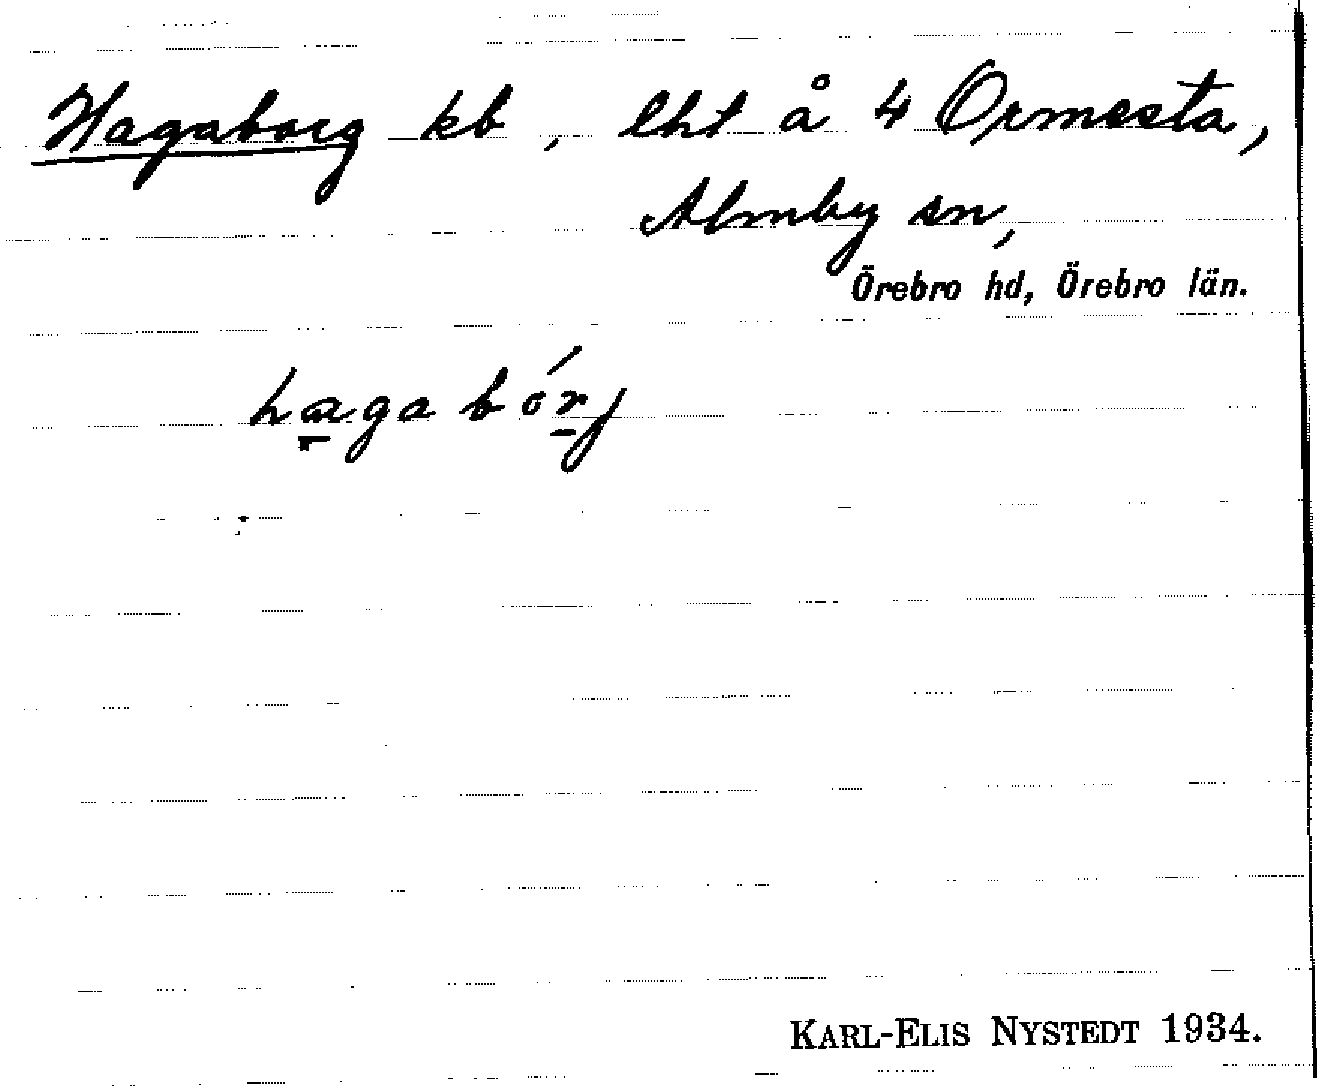 Hagaborg kb, lht å 4 Ormesta,
Almby sn,
Örebro hd, Örebro län.
hagabórj
KARL-ELIS NYSTEDT 1934.